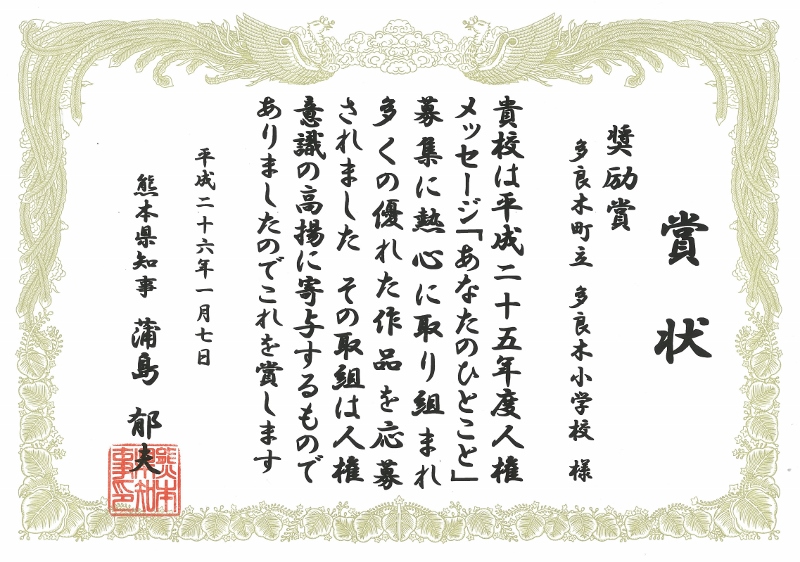 賞状
奨励賞
多良木町立 多良木小学校 様
貴校は平成二十五年度人権
メッセージ「あなたのひとこと」
募集に熱心に取り組まれ
多くの優れた作品を応募
されました その取組は人権
意識の高揚に寄与するもので
ありましたのでこれを賞します
平成二十六年一月七日
熊本県知事 蒲島 郁夫
熊本県知事之印